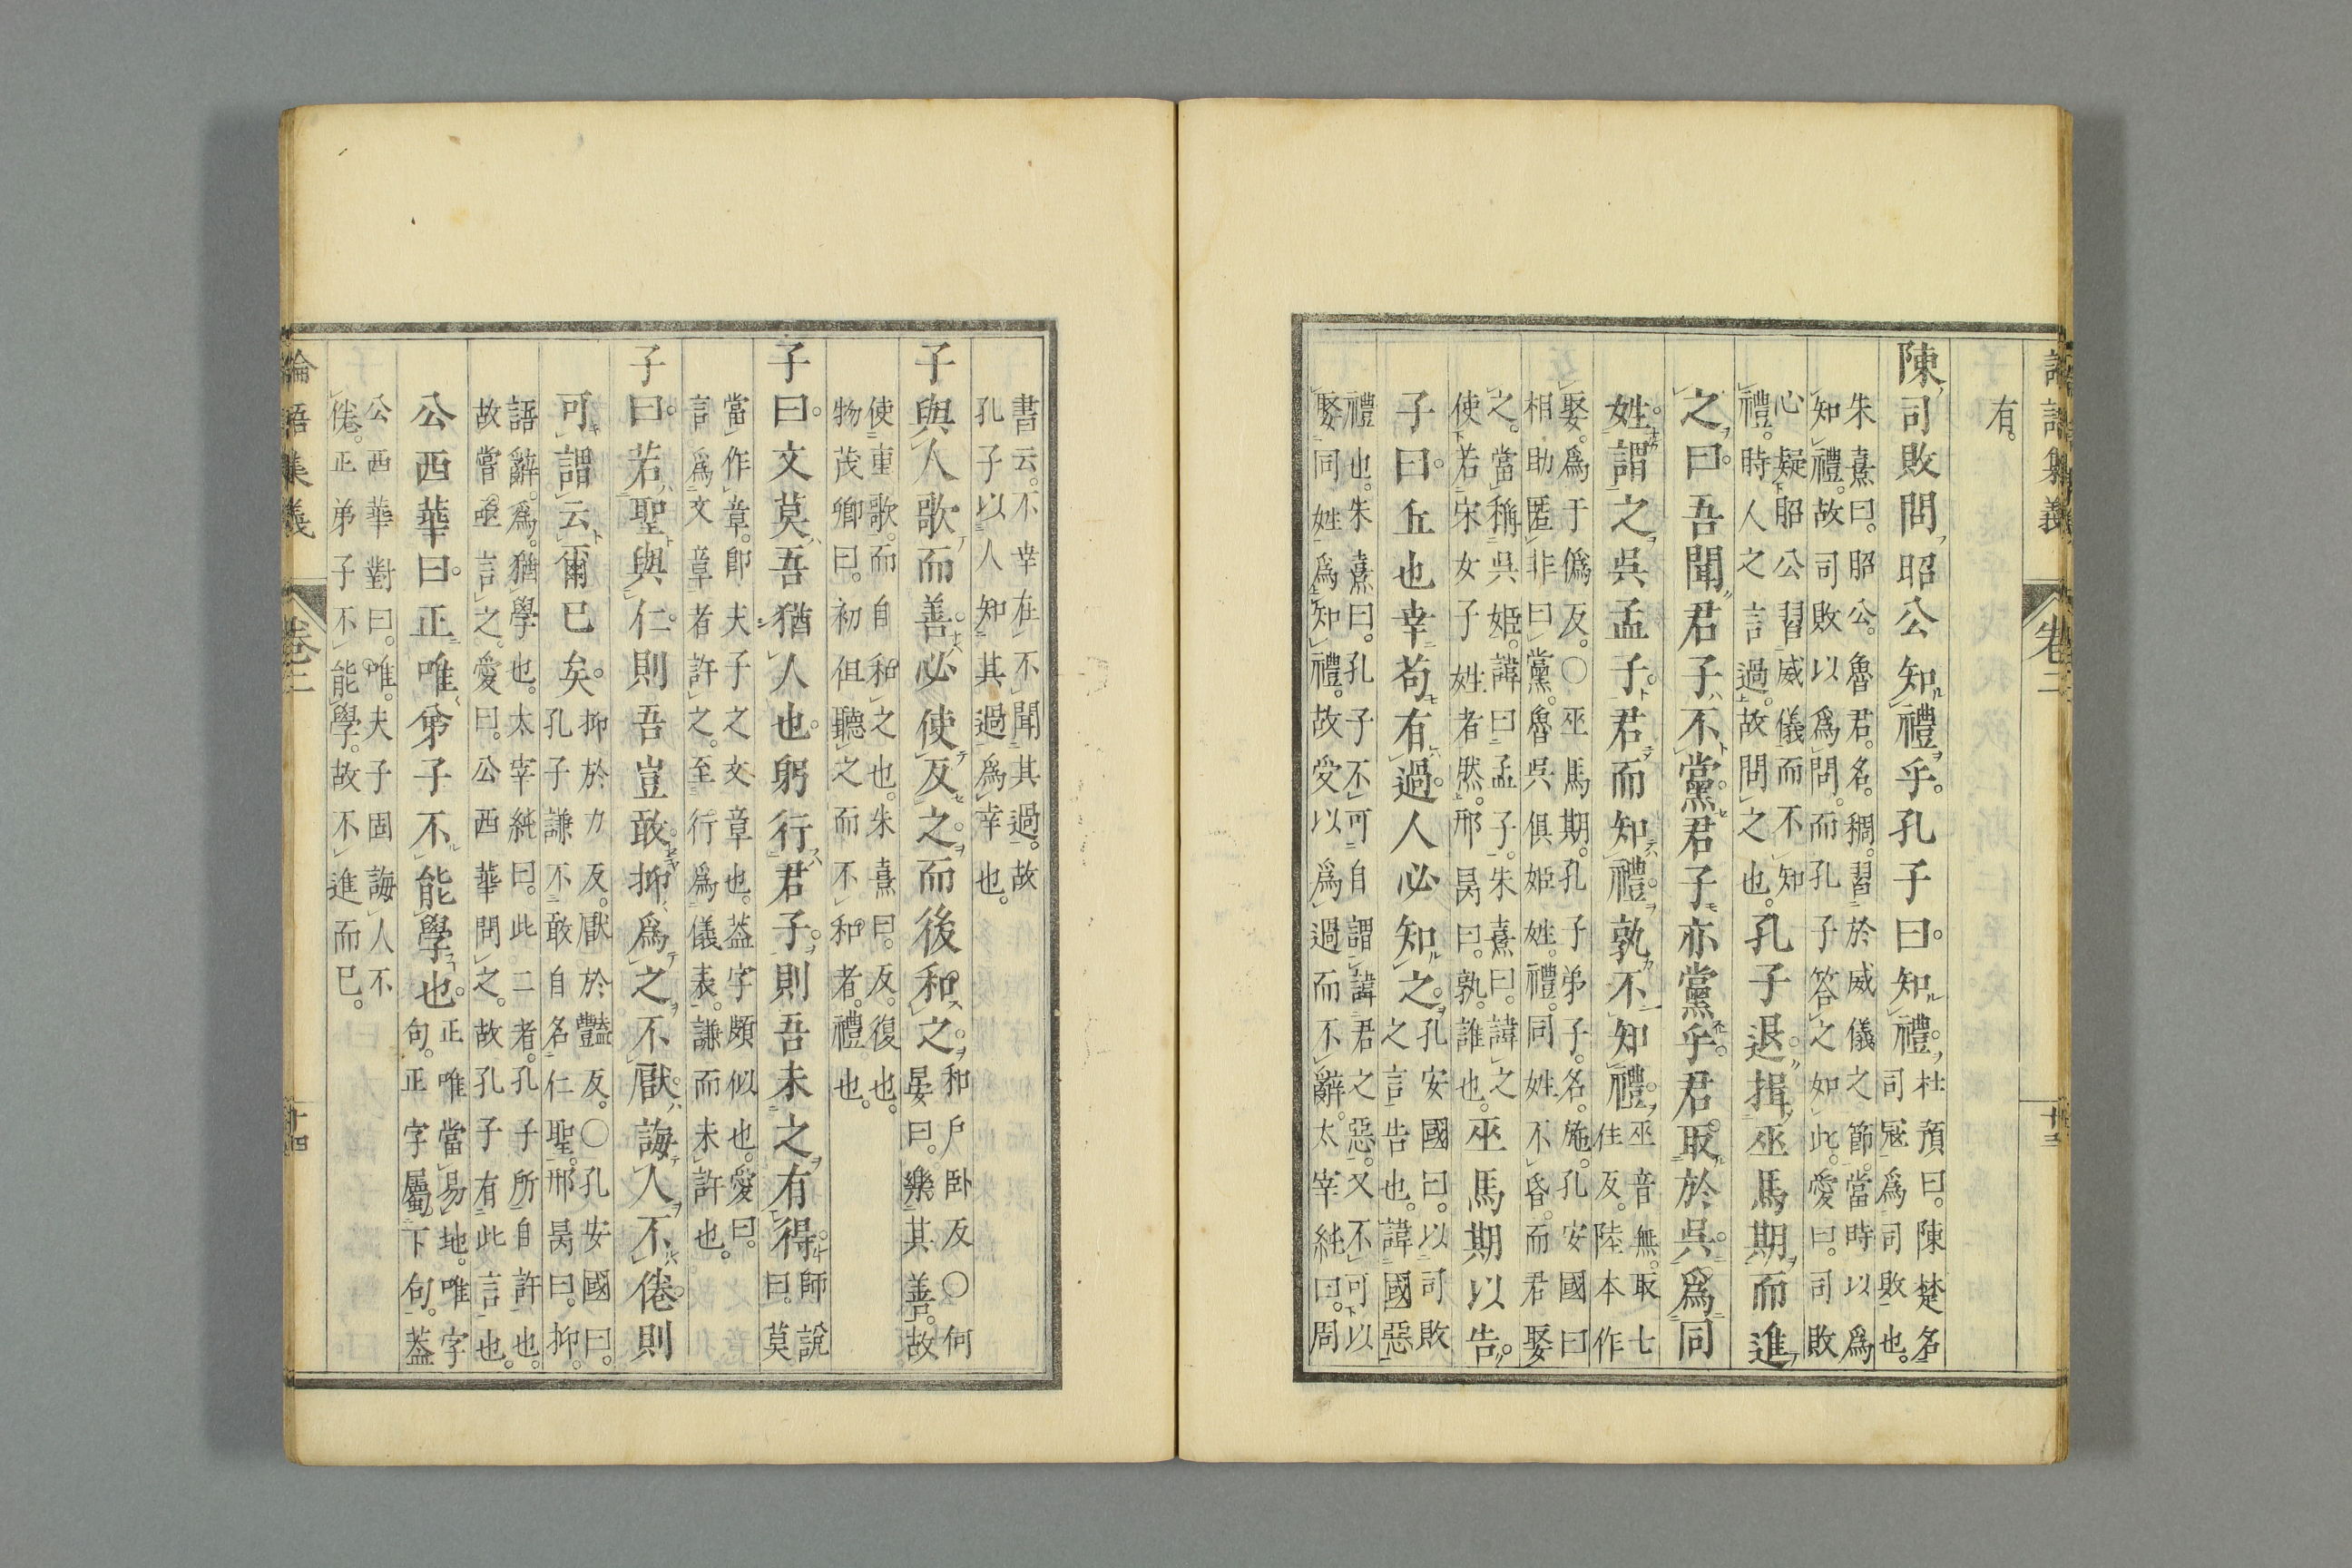 論語集義 卷二 十三
有。
陳司敗問昭公知禮乎。孔子曰。知禮。
杜預曰。陳楚名
司冦爲司敗也。
朱熹曰。昭公。魯君。名。稠。習於威儀之節。當時以爲
知禮。故司敗以爲問。而孔子答之如此。愛曰。司敗
心疑昭公習威儀而不知
禮。時人之言過。故問之也。
孔子退。揖巫馬期而進
之曰。吾聞君子不黨。君子亦黨乎。君取於吳。爲同
姓。謂之吳孟子。君而知禮。孰不知禮。
巫音無。取七
佳反。陸本作
娶。爲于僞反。〇巫馬期。孔子弟子。名。施。孔安國曰
相助匿非曰黨。魯吳俱姫姓。禮。同姓不昏。而君娶
之。當稱吳姫。諱曰孟子。朱熹曰。諱之
使若宋女子姓者然。邢昺曰。孰。誰也。
巫馬期以告。
子曰。丘也幸。苟有過。人必知之。
孔安國曰。以司敗
之言告也。諱國惡
禮也。朱熹曰。孔子不可自謂諱君之惡。又不可以
娶同姓爲知禮。故受以爲過而不辭。太宰純曰。周
書云。不幸在不聞其過。故
孔子以人知其過爲幸也。
子與人歌而善。必使反之。而後和之。
和戶卧反〇何
晏曰。樂其善。故
使重歌。而自和之也。朱熹曰。反。復也。
物茂卿曰。初但聽之而不和者。禮也。
子曰。文莫吾猶人也。躬行君子。則吾未之有得。
師說
曰。莫
當作章。卽夫子之文章也。葢字頗似也。愛曰。
言爲文章者許之。至行爲儀表。謙而未許也。
子曰。若聖與仁。則吾豈敢。抑爲之不厭。誨人不倦。則
可謂云爾已矣。
抑於力反。厭於豔反。〇孔安國曰。
孔子謙不敢自名仁聖。邢昺曰。抑。
語辭。爲。猶學也。太宰純曰。此二者。孔子所自許也。
故嘗亟言之。愛曰。公西華問之。故孔子有此言也。
公西華曰。正唯弟子不能學也。
正唯當易地。唯字
句。正字屬下句。葢
公西華對曰。唯。夫子固誨人不
倦。正弟子不能學。故不進而已。
論語集義 卷二 十四